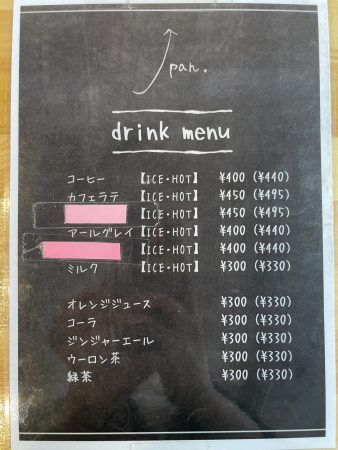 pan.
drink menu
コーヒー 【ICE・HOT】 ¥400 (¥440)
カフェラテ 【ICE・HOT】 ¥450 (¥495)
【ICE・HOT】 ¥450 (¥495)
アールグレイ 【ICE・HOT】 ¥400 (¥440)
【ICE・HOT】 ¥400 (¥440)
ミルク 【ICE・HOT】 ¥300 (¥330)
オレンジジュース ¥300 (¥330)
コーラ ¥300 (¥330)
ジンジャーエール ¥300 (¥330)
ウーロン茶 ¥300 (¥330)
緑茶 ¥300 (¥330)